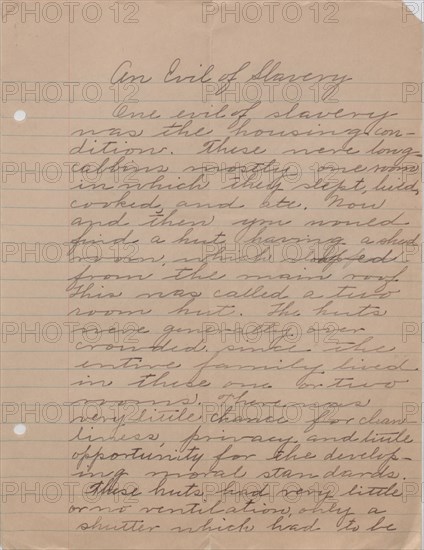 An Evil of Slavery
One evil of slavery
was the housing con-
dition. These were long
cabbins mostly one room
in which they slept, lived,
cooked, and etc. Now
and then you would
find a hut having a shed
room, which
from the main roof
This was called a two
room hut. The huts
were generally over
crowded, since the
entire family lived
in these one or two
rooms. There was
very little chance for clean
liness, privacy and little
opportunity for the develop-
ing moral standards.
These huts had very little
or no ventilation, only a
shutter which had to be